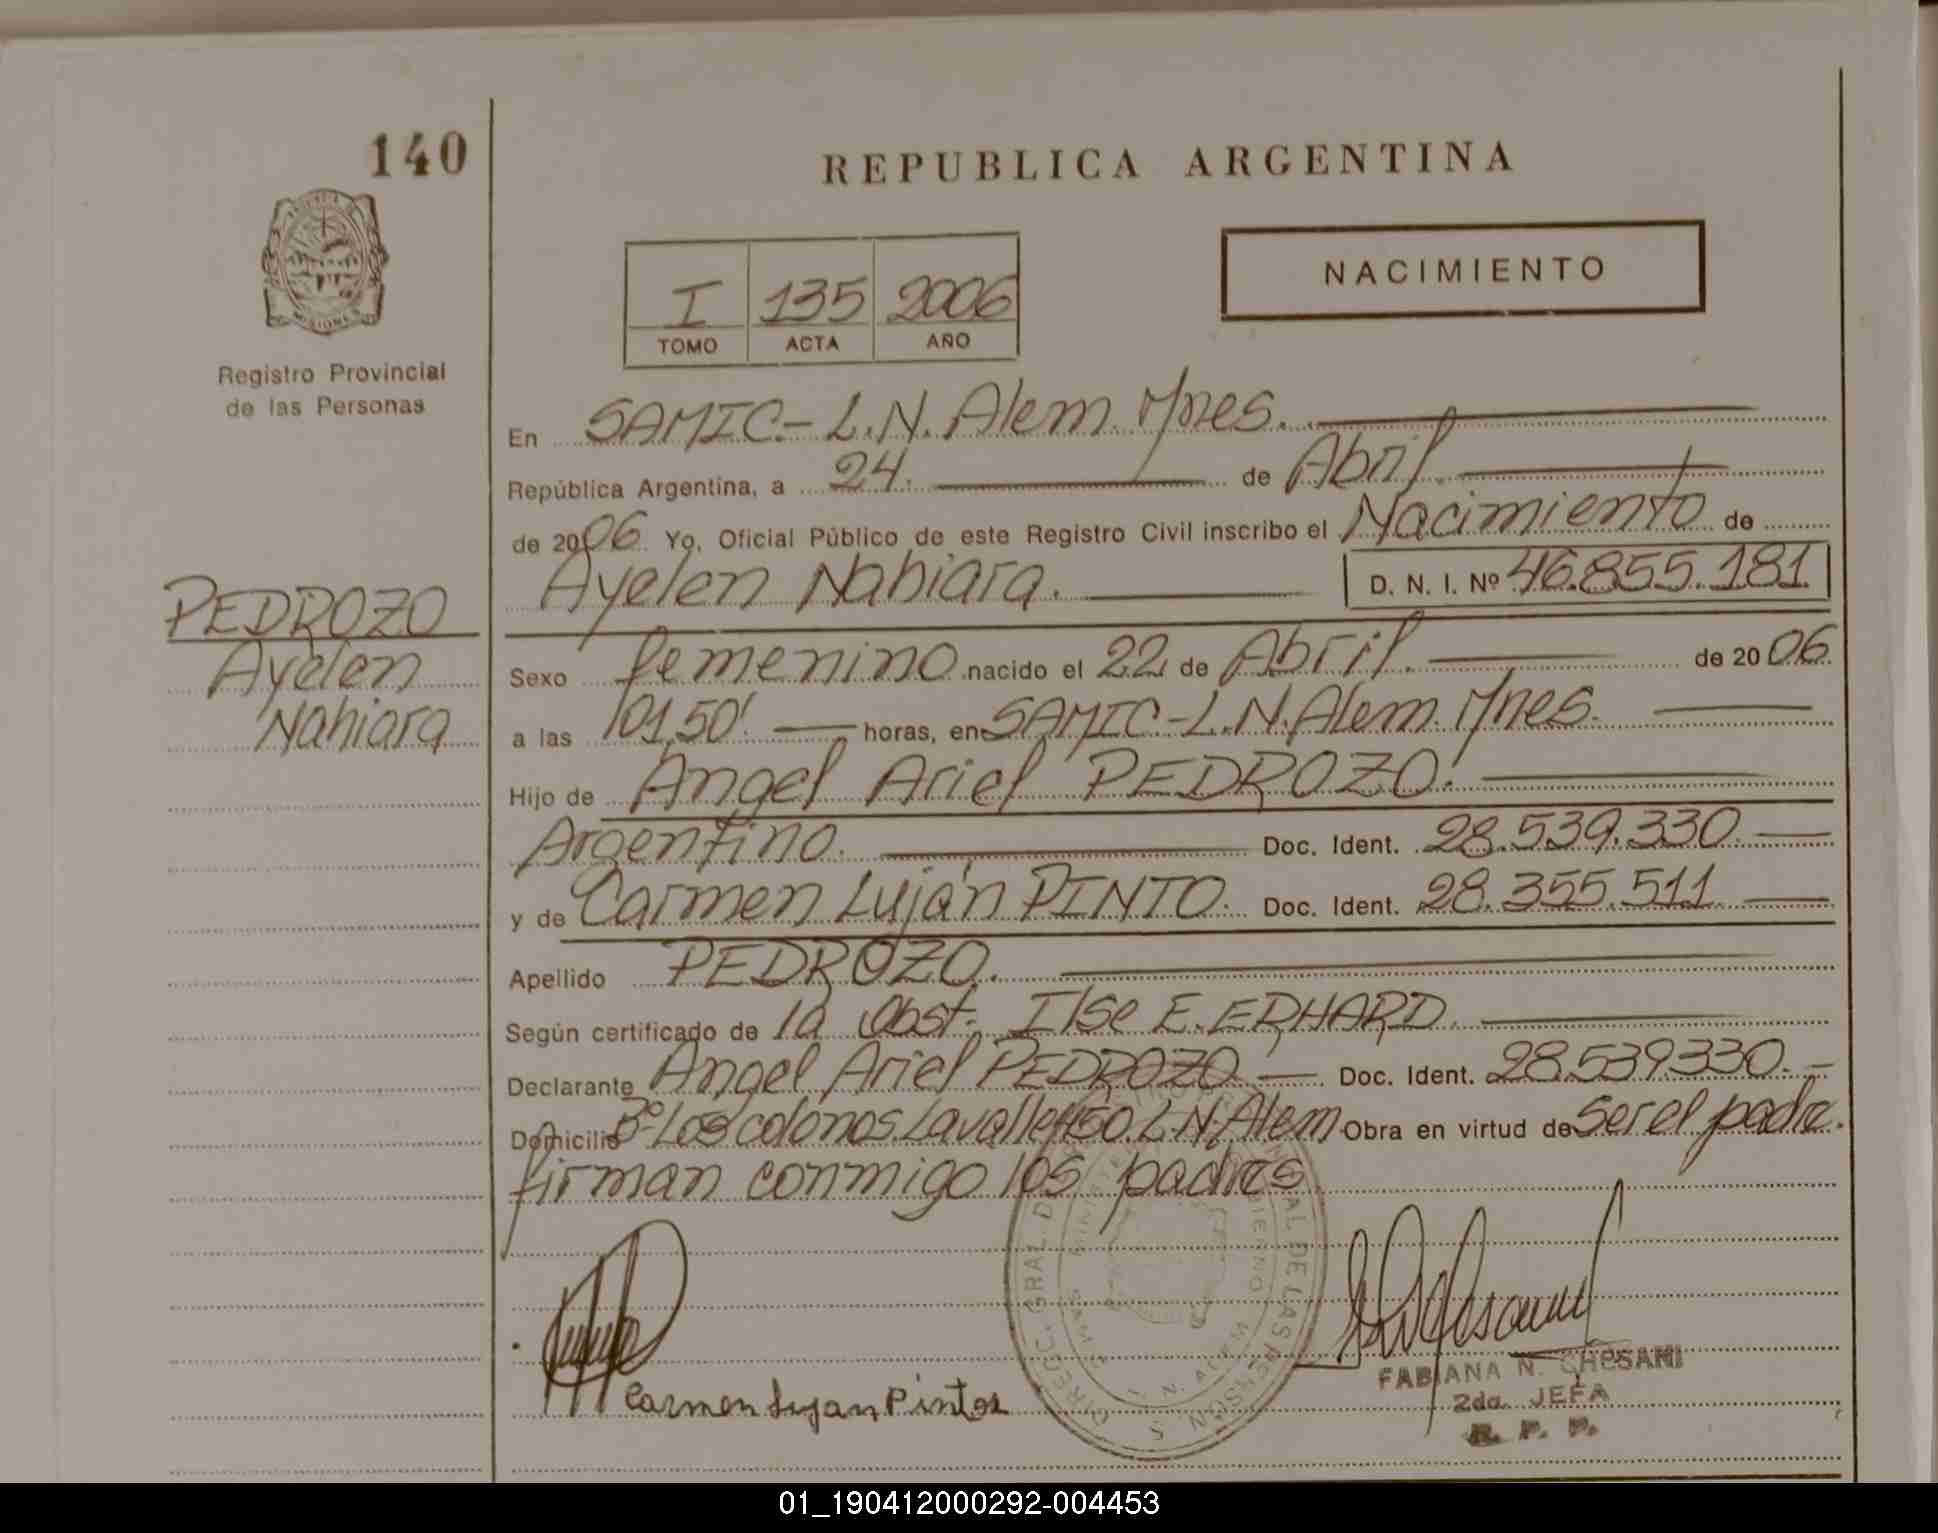 140
REPUBLICA ARGENTINA
NACIMIENTO
I 135 2006
TOMO ACTA AÑO
Registro Provincial
de las Personas
En SAMIC.- L.N. Alem. Mnes.
República Argentina, a 24. de Abril.
de 2006 Yo, Oficial Público de este Registro Civil inscribo el Nacimiento de
Ayelen Nahiara. D. N. I. Nº 46.855.181
PEDROZO
Ayelen
Nahiara
Sexo femenino nacido el 22 de Abril. de 2006.
a las 01,50' horas, en SAMIC-L.N. Alem. Mnes.
Hijo de Angel Ariel PEDROZO.
Argentino. Doc. Ident. 28.539.330.
y de Carmen Luján PINTO. Doc. Ident. 28.355.511
Apellido PEDROZO.
Según certificado de la Obst. Ilse E. EDHARD.
Declarante Angel Ariel PEDROZO Doc. Ident. 28.539.330.-
Domicilio Bº Los colonos. Lavalle 450. L.N. Alem Obra en virtud de ser el padre.
firman conmigo los padres
Carmen Lujan Pintos
FABIANA N. GHESANI
2da. JEFA
R. P. P.
01_190412000292-004453